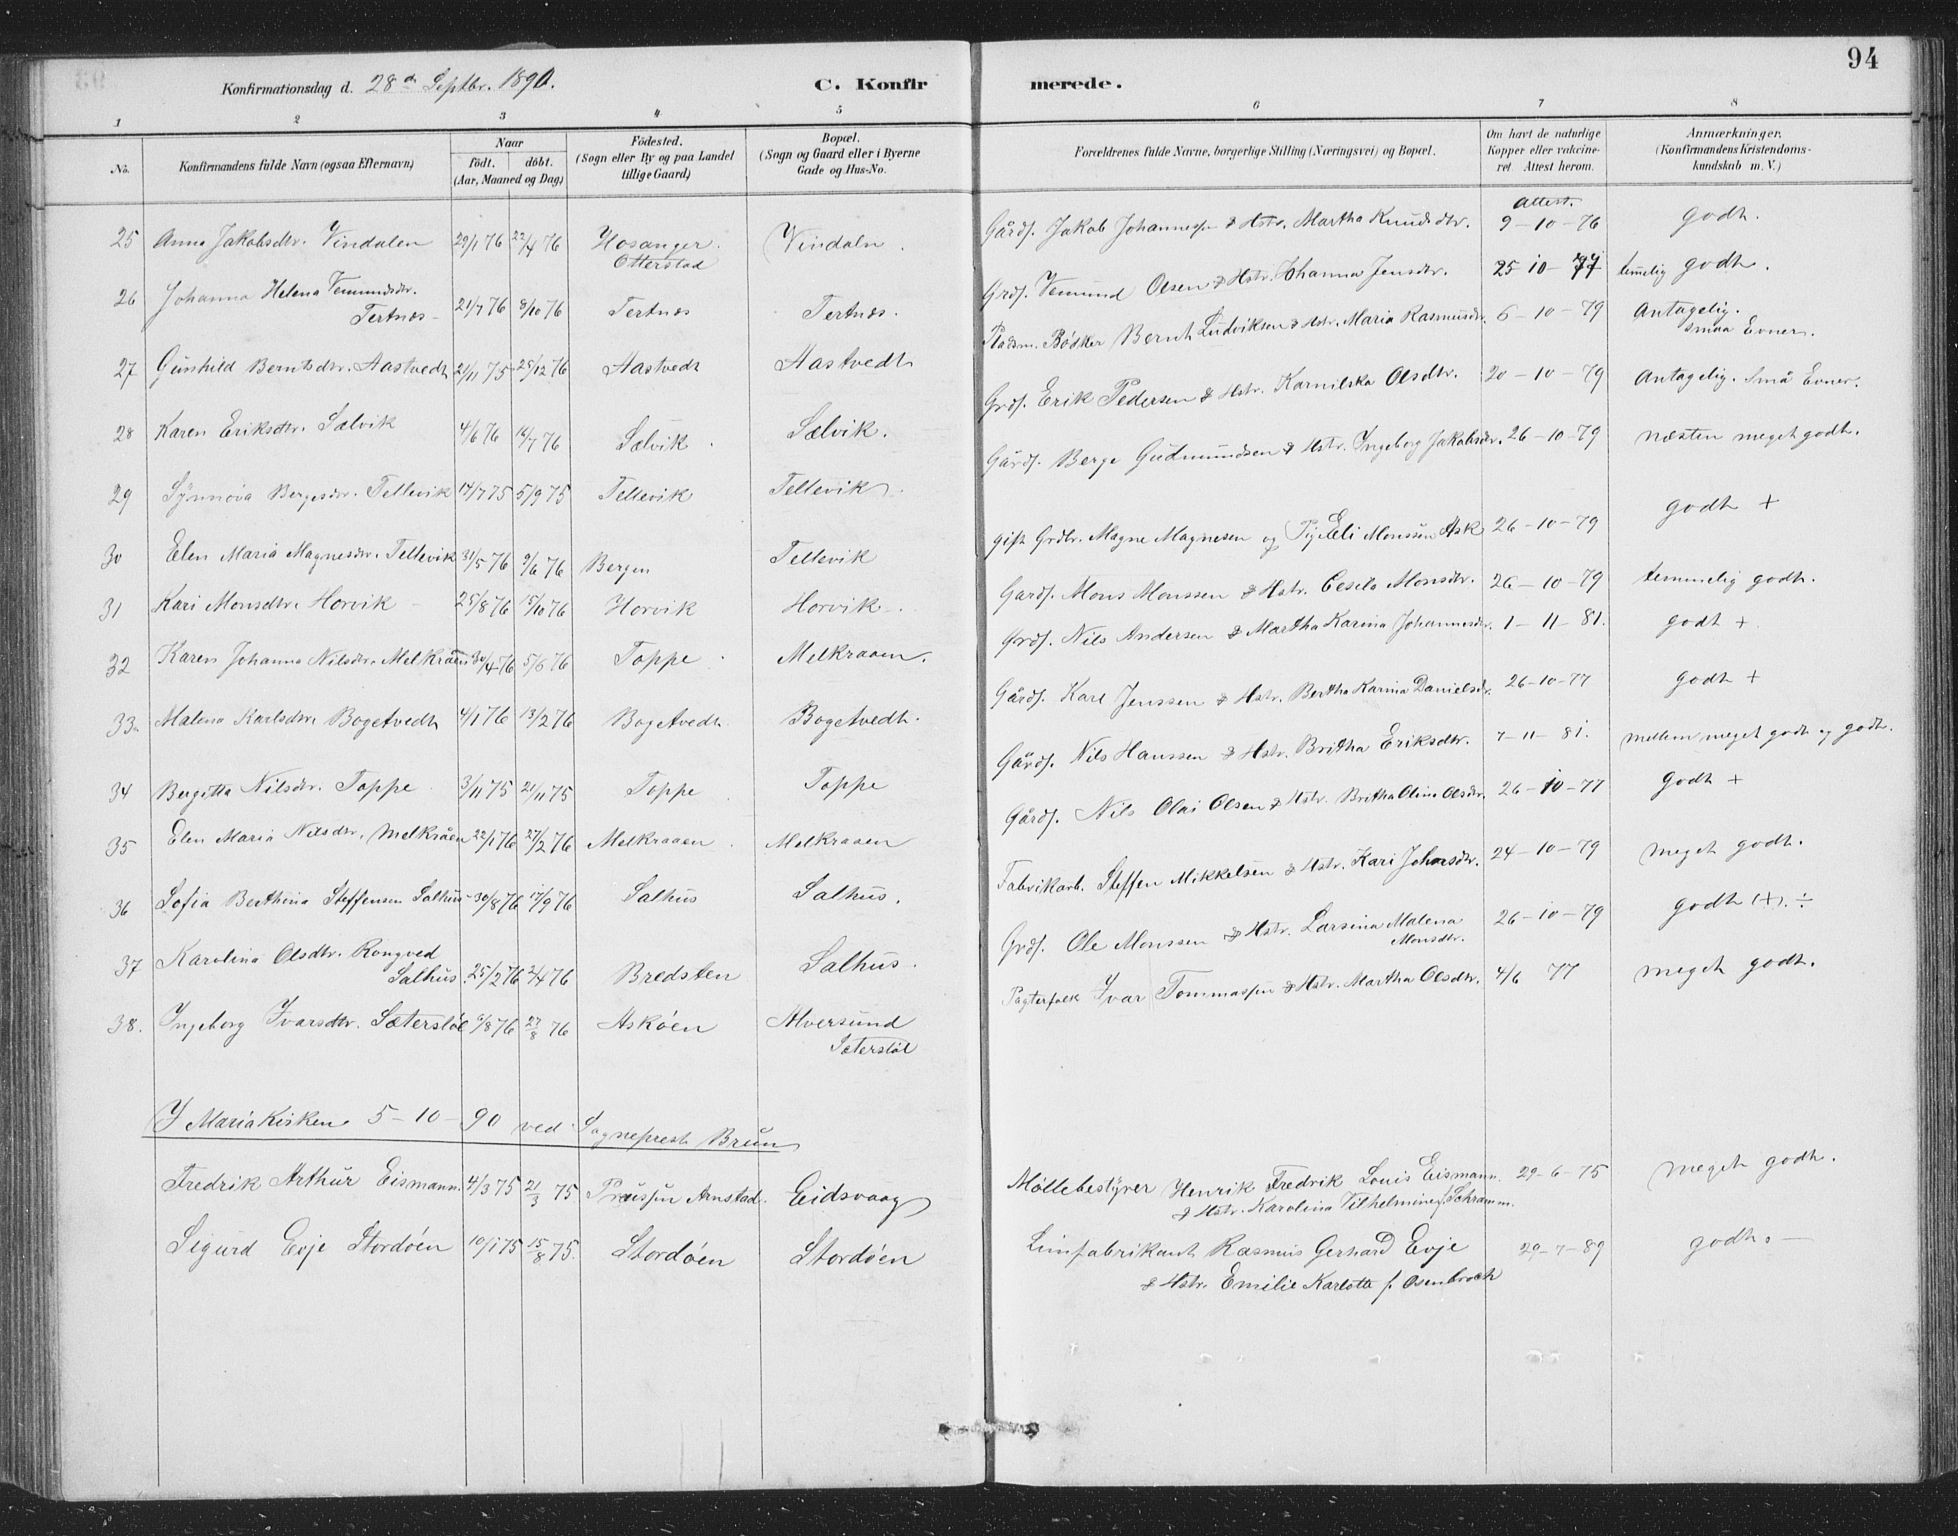 94
Konfirmationsdag d. 28de Septbr. 1890. C. Konfirmerede.
1 2 3 4 5 6 7 8
No. Konfirmandens fulde Navn (ogsaa Efternavn) Naar födt. döbt. (Aar, Maaned og Dag) Födested. (Sogn eller By og paa Landet tillige Gaard) Bopæl. (Sogn og Gaard eller i Byerne Gade og Hus-No. Forældrenes fulde Navne, borgerlige Stilling (Næringsvei) og Bopæl. Om havt de naturlige Kopper eller vakcineret. Attest herom. Anmærkninger. (Konfirmandens Kristendomskundskab m. V.)
25 Anna Jakobsdtr. Vindalen 29/1 76 22/4 76 Hosanger Otterstad Vindaln. Gårdf. Jakob Johannessen & Hstr. Martha Knudsdtr. Attest. 9-10-76 godt.
26 Johanna Helena Vemundsdtr. Tertnæs 21/7 76 8/10 76 Tertnæs Tertnæs. Grdf. Vemund Olsen & Hstr. Johanna Jensdtr. 25-10-77 temelig godt.
27 Gunhild Berntsdtr. Aastvedt 21/11 75 25/12 76 Aastvedt Aastvedt Pladsm. Bødker Bernt Ludviksen & Hstr. Maria Rasmusdtr. 6-10-79 Antagelig. Smaa Evner.
28 Karen Eriksdtr. Sælvik 4/6 76 16/7 76 Sælvik. Sælvik. Grdf. Erik Pedersen & Hstr. Karnilska Olsdtr. 20-10-79 Antagelig. Små Evner.
29 Synnøva Bergesdtr. Tellevik 14/7 75 5/9 75 Tellevik Tellevik. Gårdf. Berge Gudmundsen & Hstr. Ingeborg Jakobsdtr. 26-10-79 næsten meget godt.
30 Elen Maria Magnesdtr. Tellevik 31/5 76 9/6 76 Bergen Tellevik gift Grdbr. Magne Magnesen og Pige Eli Monssen Ask 26-10-79 godt +
31 Kari Monsdtr. Horvik 25/8 76 15/10 76 Horvik Horvik. Gardf. Mons Monssen & Hstr. Cesila Monsdtr. 26-10-79 temmelig godt.
32 Karen Johanna Nilsdtr. Melkråen 30/4 76 5/6 76 Toppe Melkraaen. Grdf. Nils Andersen & Martha Karina Johannesdtr. 1-11-81. godt +
33. Malena Karlsdtr. Bogetvedt 4/1 76 13/2 76 Bogetvedt. Bogetvedt. Gårdf. Karl Jenssen & Hstr. Bertha Karina Danielsdr. 26-10-77 godt +
34 Bergitta Nilsdtr. Toppe 3/11 75 21/11 75 Toppe Toppe Gårdf. Nils Hanssen & Hstr. Britha Eriksdtr. 7-11-81. mellem meget godt og godt.
35 Elen Maria Nilsdtr. Melkråen 22/1 76 27/2 76 Melkraaen Melkraaen Gårdf. Nils Olai Olsen & Hstr. Britha Olina Olsdr. 26-10-77 godt +
36 Sofia Berthina Steffensen Salhus 30/8 76 17/9 76 Salhus Salhus. Fabrikarb. Steffen Mikkelsen & Hstr. Kari Johnsdtr. 24-10-79 meget godt.
37 Karolina Olsdtr. Rongved Salhus 25/2 76 2/4 76 Bredsten Salhus. Grdf. Ole Monssen & Hstr. Larsina Malena Monsdtr. 26-10-79 godt (+). ÷
38. Ingeborg Ivarsdtr. Sæterstøl 6/8 76 27/8 76 Askøen Alversund Sæterstøl Pagterfolk Ivar Tommassen & Hstr. Martha Olsdtr. 4/6 77 meget godt.
I Mariakirken 5-10-90 ved Sogneprest Brun
Fredrik Arthur Eismann. 4/3 75 21/3 75 Preussen Arnstad. Eidsvaag Møllebestyrer Henrik Fredrik Louis Eismann. & Hstr. Karolina Vilhelmine f. Schramm. 29-6-75 meget godt.
Sigurd Evje Stordøen 10/1 75 15/8 75. Stordøen Stordøen Limfabrikant Rasmus Gerhard Evje & Hstr. Emilie Karlotte f. Osenbroch 29-7-89 godt.